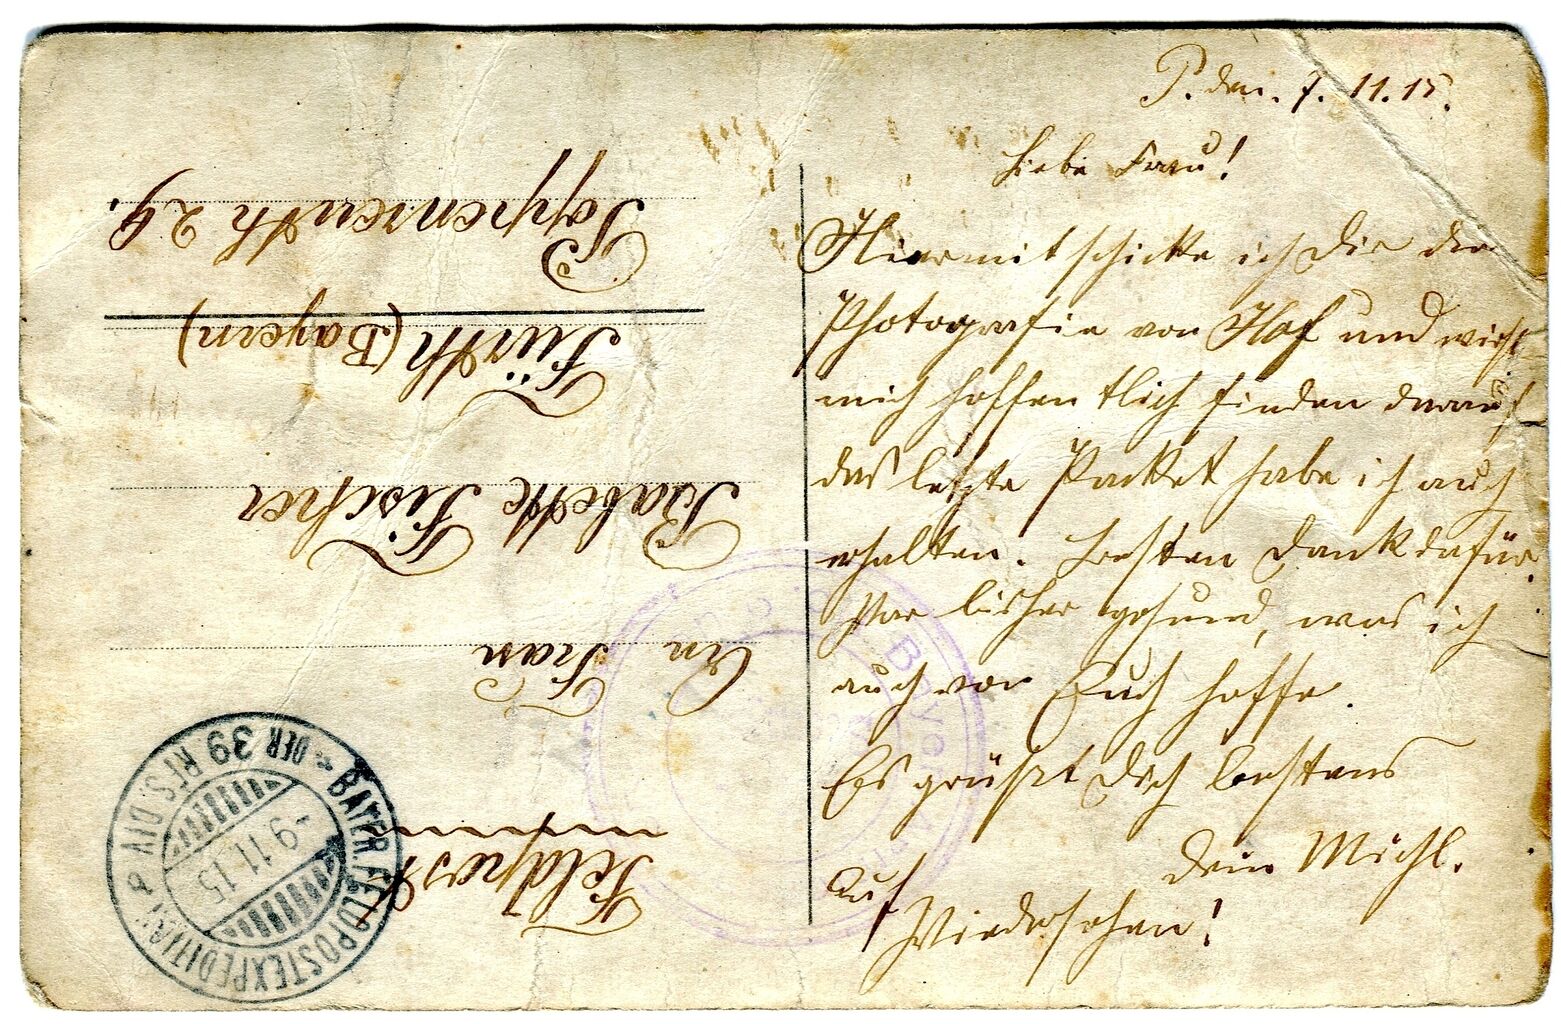 P. den. 7. 11. 15.
Liebe Frau!
Hiermit schicke ich Dir die
Photografie von Hof und wirst
mich hoffentlich finden darauf
das letzte Packet habe ich auch
erhalten. besten Dank dafür.
War bisher gesund, was ich
auch von Euch hoffe.
Es grüßt Dich bestens
dein Michl.
Auf
Wiedersehen!
Feldpost
An Frau
Babette Fischer
Fürth (Bayern)
Poppenreuth 29.
BAYER. FELDPOSTEXPEDITION
DER 39 RES. DIV.
-9.11.15
Bayer.